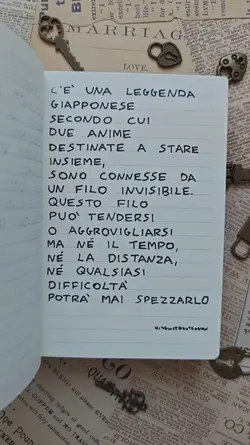 C'È UNA LEGGENDA
GIAPPONESE
SECONDO CUI
DUE ANIME
DESTINATE A STARE
INSIEME,
SONO CONNESSE DA
UN FILO INVISIBILE.
QUESTO FILO
PUÒ TENDERSI
O AGGROVIGLIARSI
MA NÉ IL TEMPO,
NÉ LA DISTANZA,
NÉ QUALSIASI
DIFFICOLTÀ
POTRÀ MAI SPEZZARLO
MARRIAGE
LOVE.